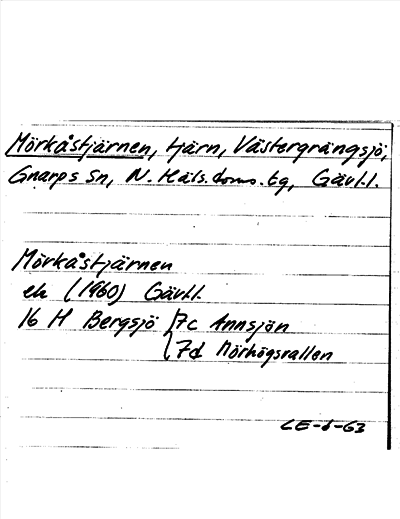 Mörkåstjärnen, tjärn, Västergrängsjö,
Gnarps Sn, N. Häls. doms. tg, Gävl.l.
Mörkåstjärnen
ek (1960) Gävl.l.
16 H Bergsjö 7c Annsjön
7d Mörhögsvallen
LE-d-63